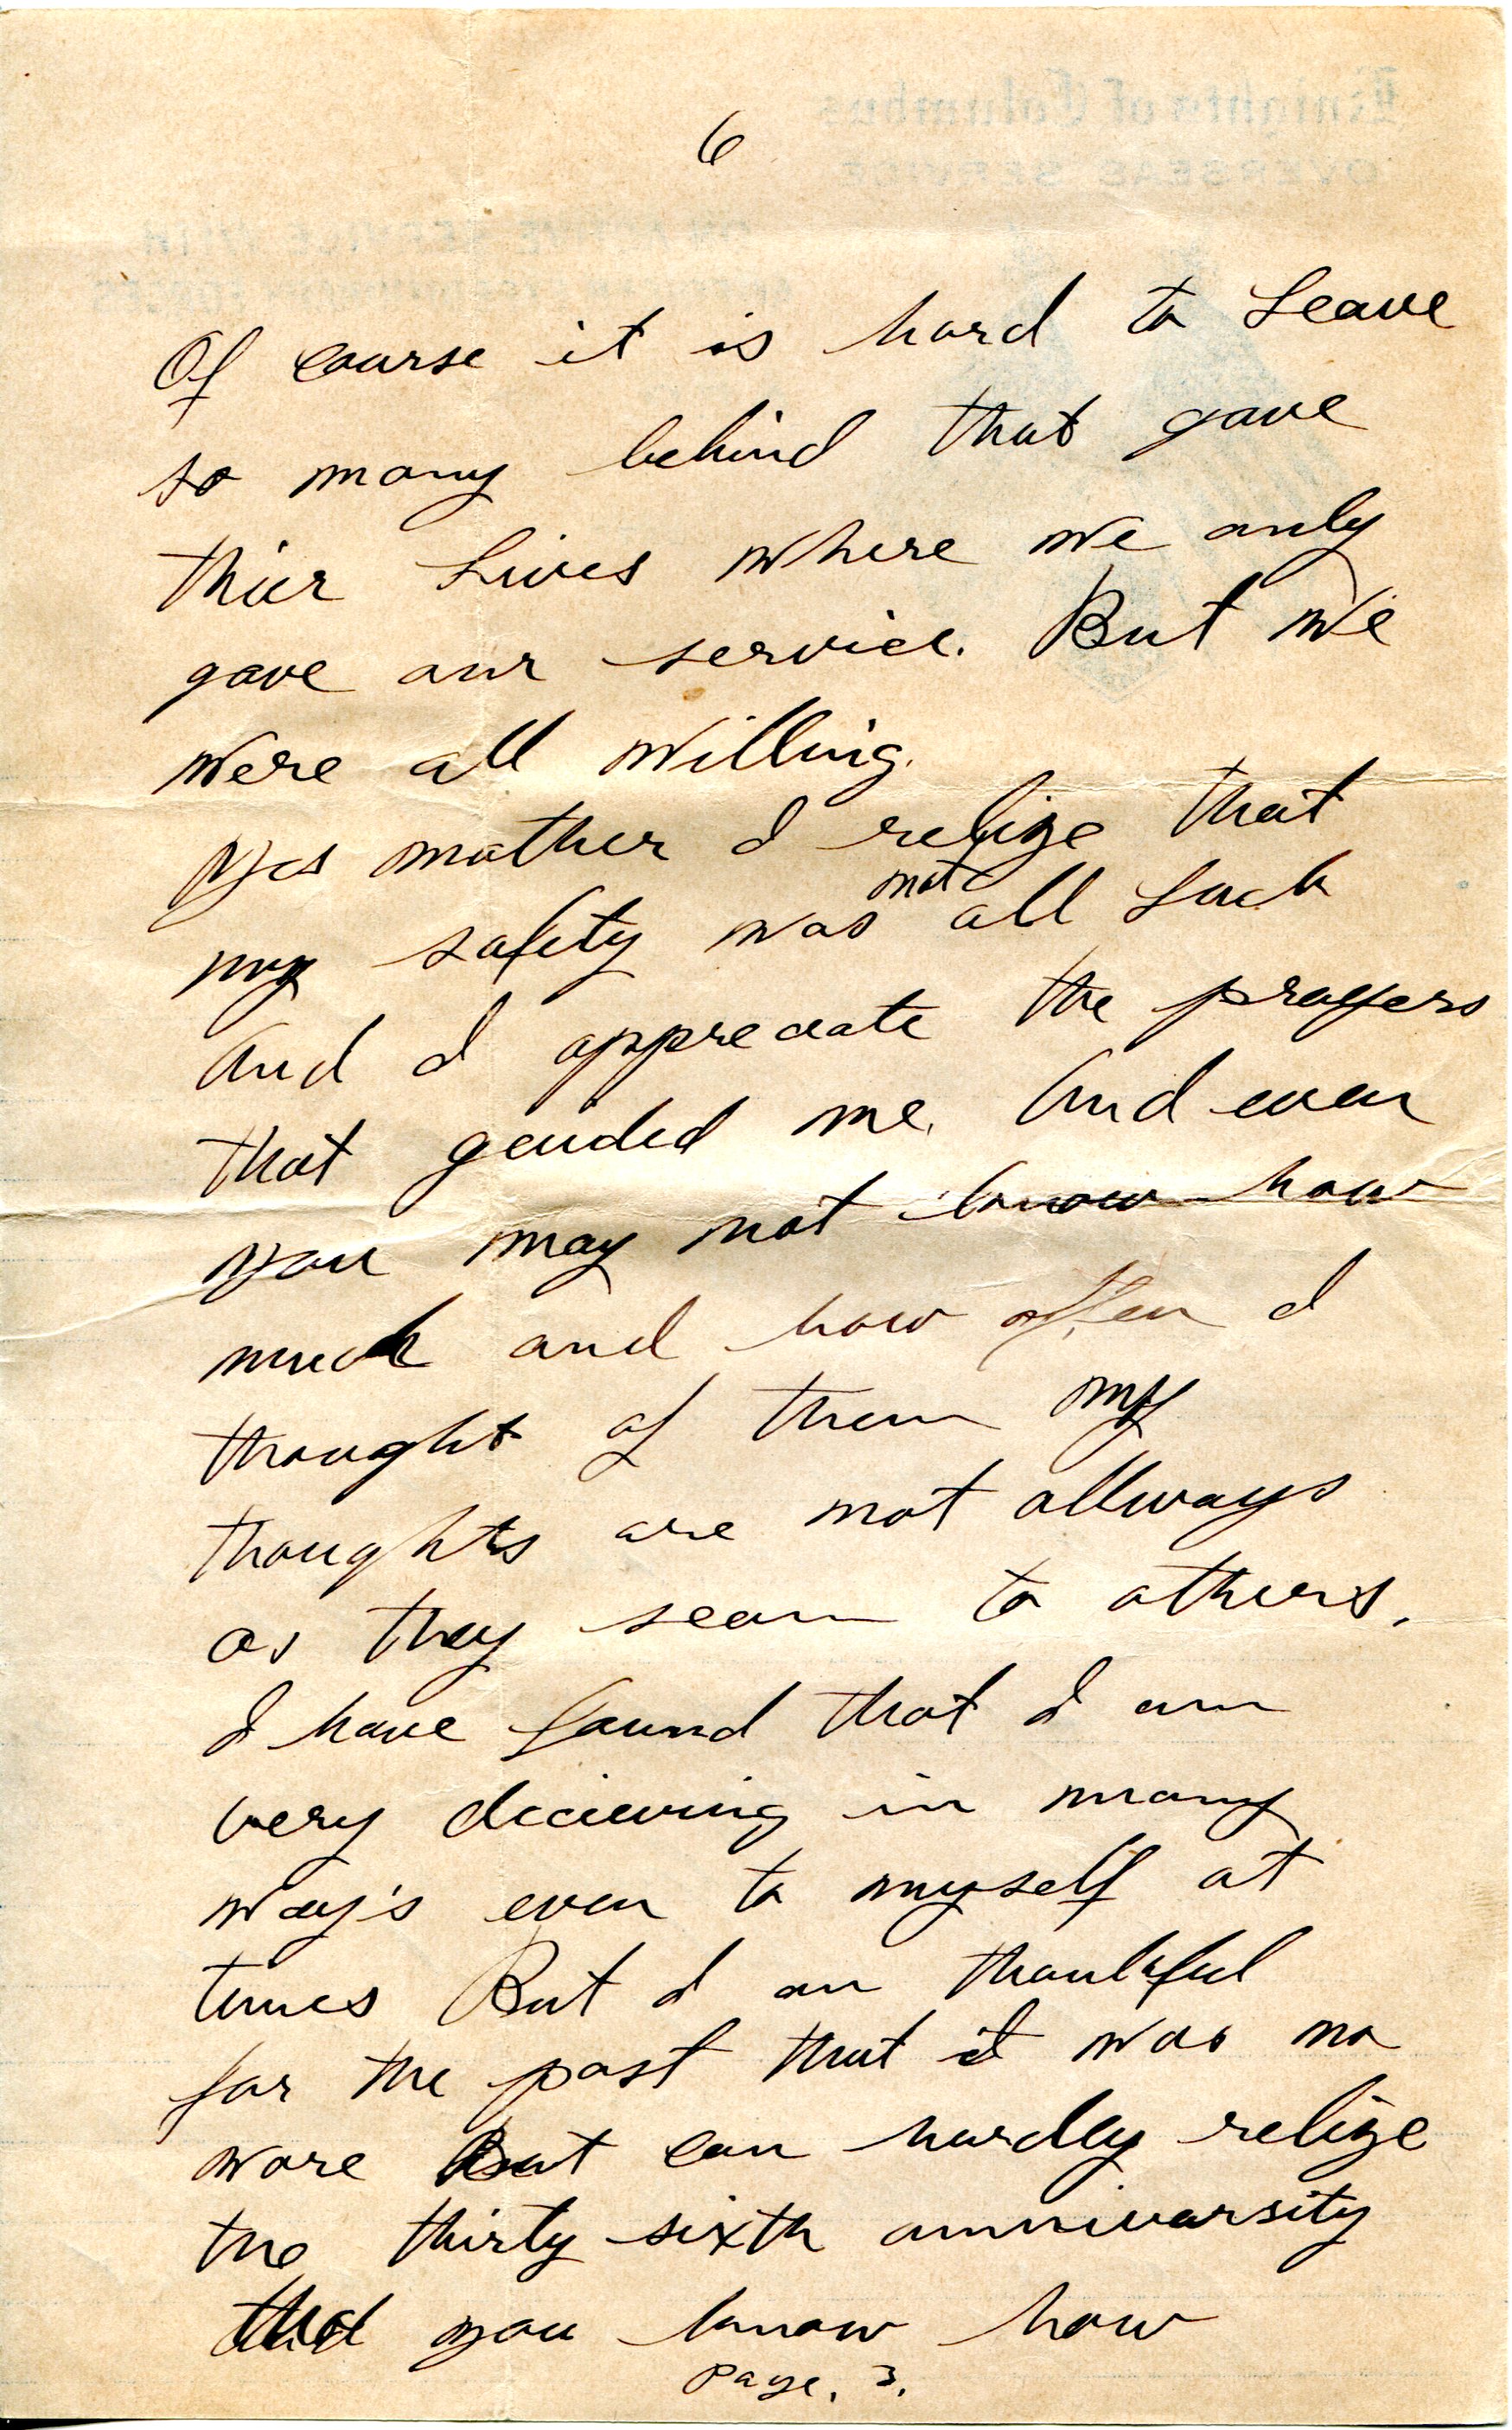 6
Of course it is hard to Leave
so many behind that gave
thier Lives where we only
gave our service. But we
were all willing.
Yes mother I relize that
not
my safety was all Luck
And I appreceate the prayers
that geuided me. And even
you may not know how
much and how often I
thought of them my
thoughts are not allways
as they seam to others.
I have found that I am
very decieving in many
way's even to myself at
times But I am thankful
for the past that it was no
worse But can hardly relize
the thirty sixth anniversity
And you know how
Page. 3.
Knights of Columbus
OVERSEAS SERVICE